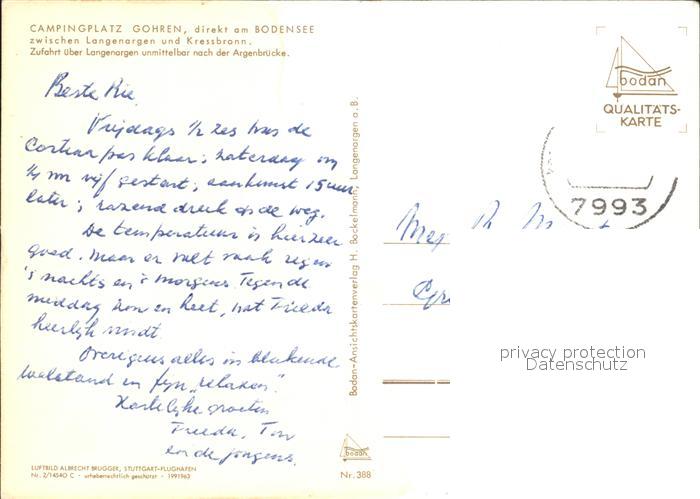 CAMPINGPLATZ GOHREN, direkt am BODENSEE
zwischen Langenargen und Kressbronn.
Zufahrt über Langenargen unmittelbar nach der Argenbrücke.
Beste Rie
Vrijdags ½ zes was de
pas klaar; zaterdag om
¼ vijf gestart, aankomst 15 uur
later; razend druk op de weg.
De temperatuur is hier zeer
goed. Maar er valt vaak regen
's nachts en 's morgens. Tegen de
middag zon en heet, wat Frieda
heerlijk vindt.
Overigens alles in blakende
welstand en fijn „relaxen".
Hartelijke groeten
Frieda, Ton
en de jongens.
LUFTBILD ALBRECHT BRUGGER, STUTTGART-FLUGHAFEN
Nr. 2/14540 C - urheberrechtlich geschützt - 1991963
Bodan-Ansichtskartenverlag H. Bockelmann, Langenargen a. B.
bodan
Nr. 388
bodan
QUALITÄTS-
KARTE
7993
privacy protection
Datenschutz